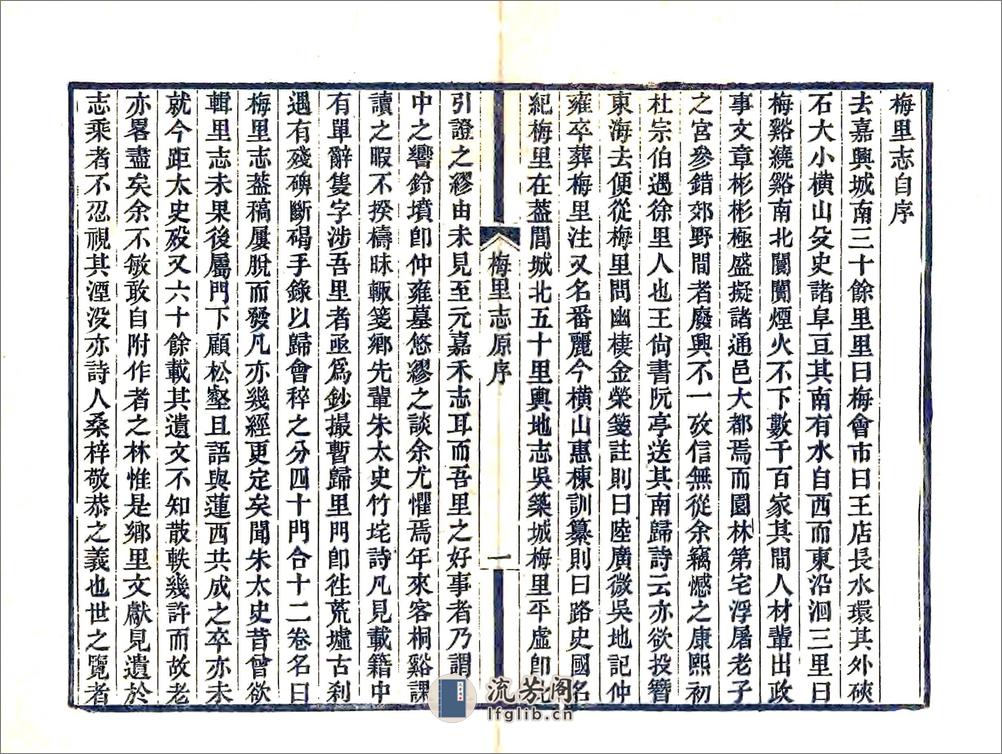 梅里志自序
去嘉興城南三十餘里里曰梅會市曰王店長水環其外硤
石大小横山殳史諸阜亘其南有水自西而東沿洄三里曰
梅谿繞谿南北闤闠煙火不下數千百家其間人材輩出政
事文章彬彬極盛擬諸通邑大都焉而園林第宅浮屠老子
之宫參錯郊野間者廢興不一攷信無從余竊憾之康熙初
杜宗伯遇徐里人也王尙書阮亭送其南歸詩云亦欲投簪
東海去便從梅里問幽棲金榮箋註則曰陸廣微吳地記仲
雍卒葬梅里注又名番麗今横山惠棟訓纂則曰路史國名
紀梅里在葢閭城北五十里輿地志吳築城梅里平虛卽
梅里志原序
一
引證之繆由未見至元嘉禾志耳而吾里之好事者乃謂
中之響鈴墳卽仲雍墓悠繆之談余尤懼焉年來客桐谿課
讀之暇不揆檮昧輙箋鄉先輩朱太史竹垞詩凡見載籍中
有單辭隻字涉吾里者亟爲鈔撮暫歸里門卽徃荒墟古刹
遇有殘碑斷碣手錄以歸會稡之分四十門合十二卷名曰
梅里志葢稿屢脫而發凡亦幾經更定矣聞朱太史昔曾欲
輯里志未果後屬門下顧松壑且語與蓮西共成之卒亦未
就今距太史殁又六十餘載其遺文不知散軼幾許而故老
亦畧盡矣余不敏敢自附作者之林惟是鄉里文獻見遺於
志乘者不忍視其湮没亦詩人桑梓敬恭之義也世之覽者
流芳阁
lfglib.cn